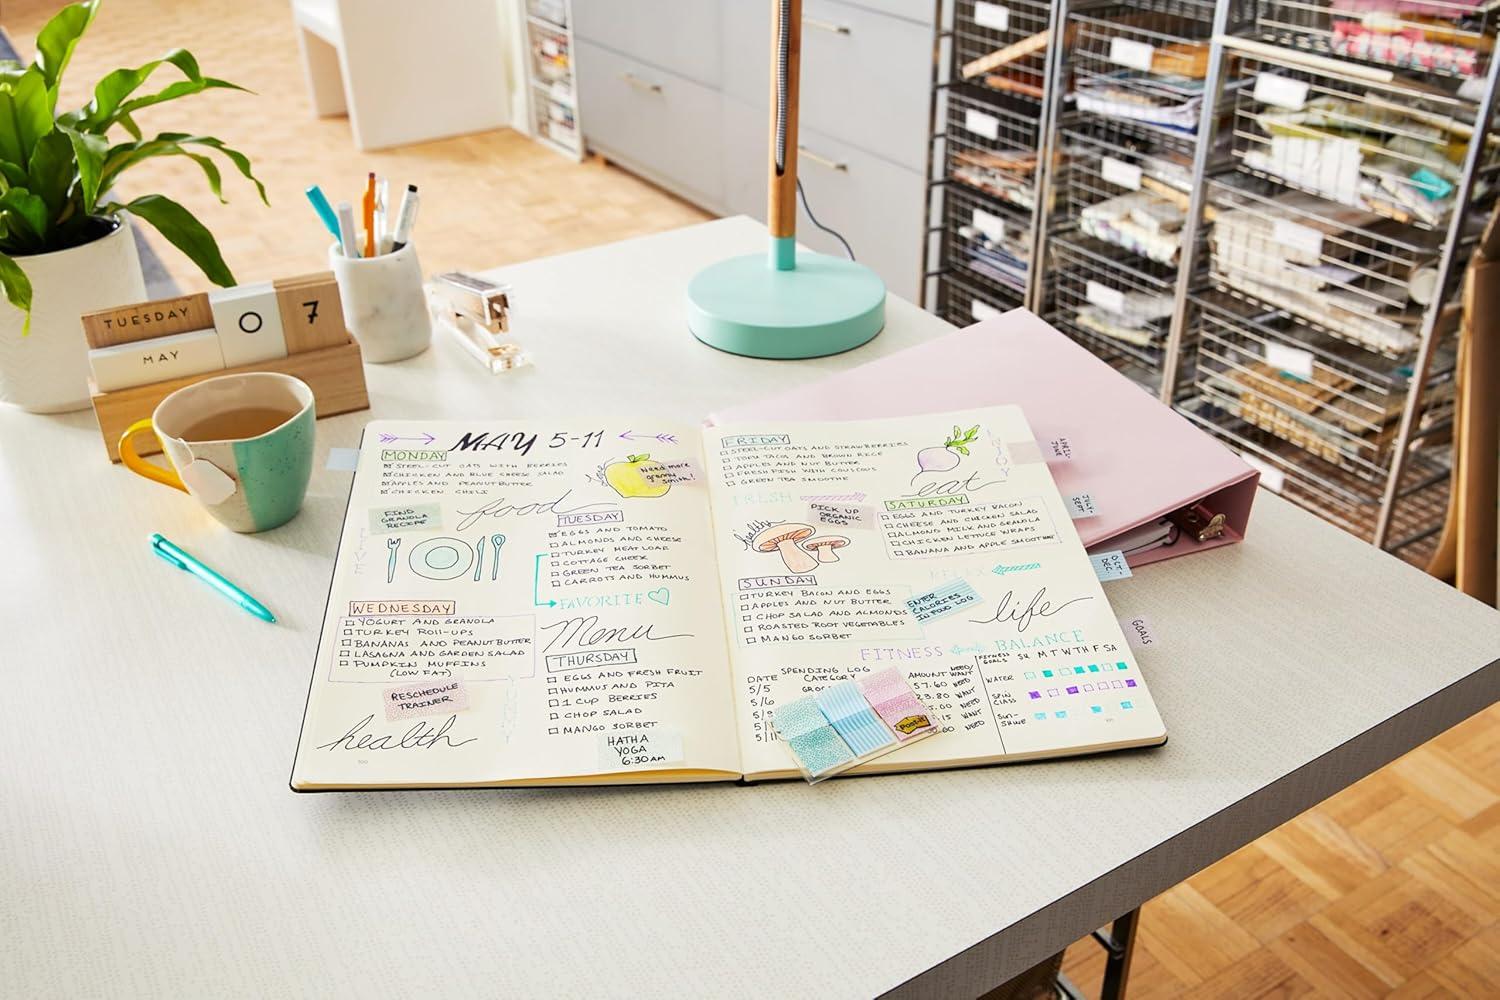 TUESDAY
MAY
0 7
MAY 5-11
MONDAY
STEEL-CUT OATS WITH BERRIES
CHICKEN AND BLUE CHEESE SALAD
APPLES AND PEANUT BUTTER
CHICKEN CHILI
Need more
granny
smith!
FIND
GRANOLA
RECIPE
food
TUESDAY
EGGS AND TOMATO
ALMONDS AND CHEESE
TURKEY MEATLOAF
COTTAGE CHEESE
GREEN TEA SORBET
CARROTS AND HUMMUS
FAVORITE
LIVE
WEDNESDAY
YOGURT AND GRANOLA
TURKEY ROLL-UPS
BANANAS AND PEANUT BUTTER
LASAGNA AND GARDEN SALAD
PUMPKIN MUFFINS
(LOW FAT)
Menu
THURSDAY
EGGS AND FRESH FRUIT
HUMMUS AND PITA
1 CUP BERRIES
CHOP SALAD
MANGO SORBET
RESCHEDULE
TRAINER
health
HATHA
YOGA
6:30 AM
100
FRIDAY
STEEL-CUT OATS AND STRAWBERRIES
TOFU TACOS AND BROWN RICE
APPLES AND NUT BUTTER
FRESH FISH WITH COUSCOUS
GREEN TEA SMOOTHIE
ENJOY
eat
FRESH
PICK UP
ORGANIC
EGGS
healthy
SATURDAY
EGGS AND TURKEY BACON
CHEESE AND CHICKEN SALAD
ALMOND MILK AND GRANOLA
CHICKEN LETTUCE WRAPS
BANANA AND APPLE SMOOTHIE
RELAX
SUNDAY
TURKEY BACON AND EGGS
APPLES AND NUT BUTTER
CHOP SALAD AND ALMONDS
ROASTED ROOT VEGETABLES
MANGO SORBET
ENTER
CALORIES
IN FOOD LOG
life
FITNESS BALANCE
SPENDING LOG
DATE CATEGORY AMOUNT NEED/WANT
5/5 GROC 57.60 NEED
5/6 23.80 WANT
5/9 5.00 NEED
5/1 .15 WANT
5/11 30.60 NEED
Post-it
FITNESS
GOALS SU M T W TH F SA
WATER
SPIN
CLASS
SUN-
SHINE
101
APRIL-
JUNE
JULY-
SEPT
OCT-
DEC.
GOALS